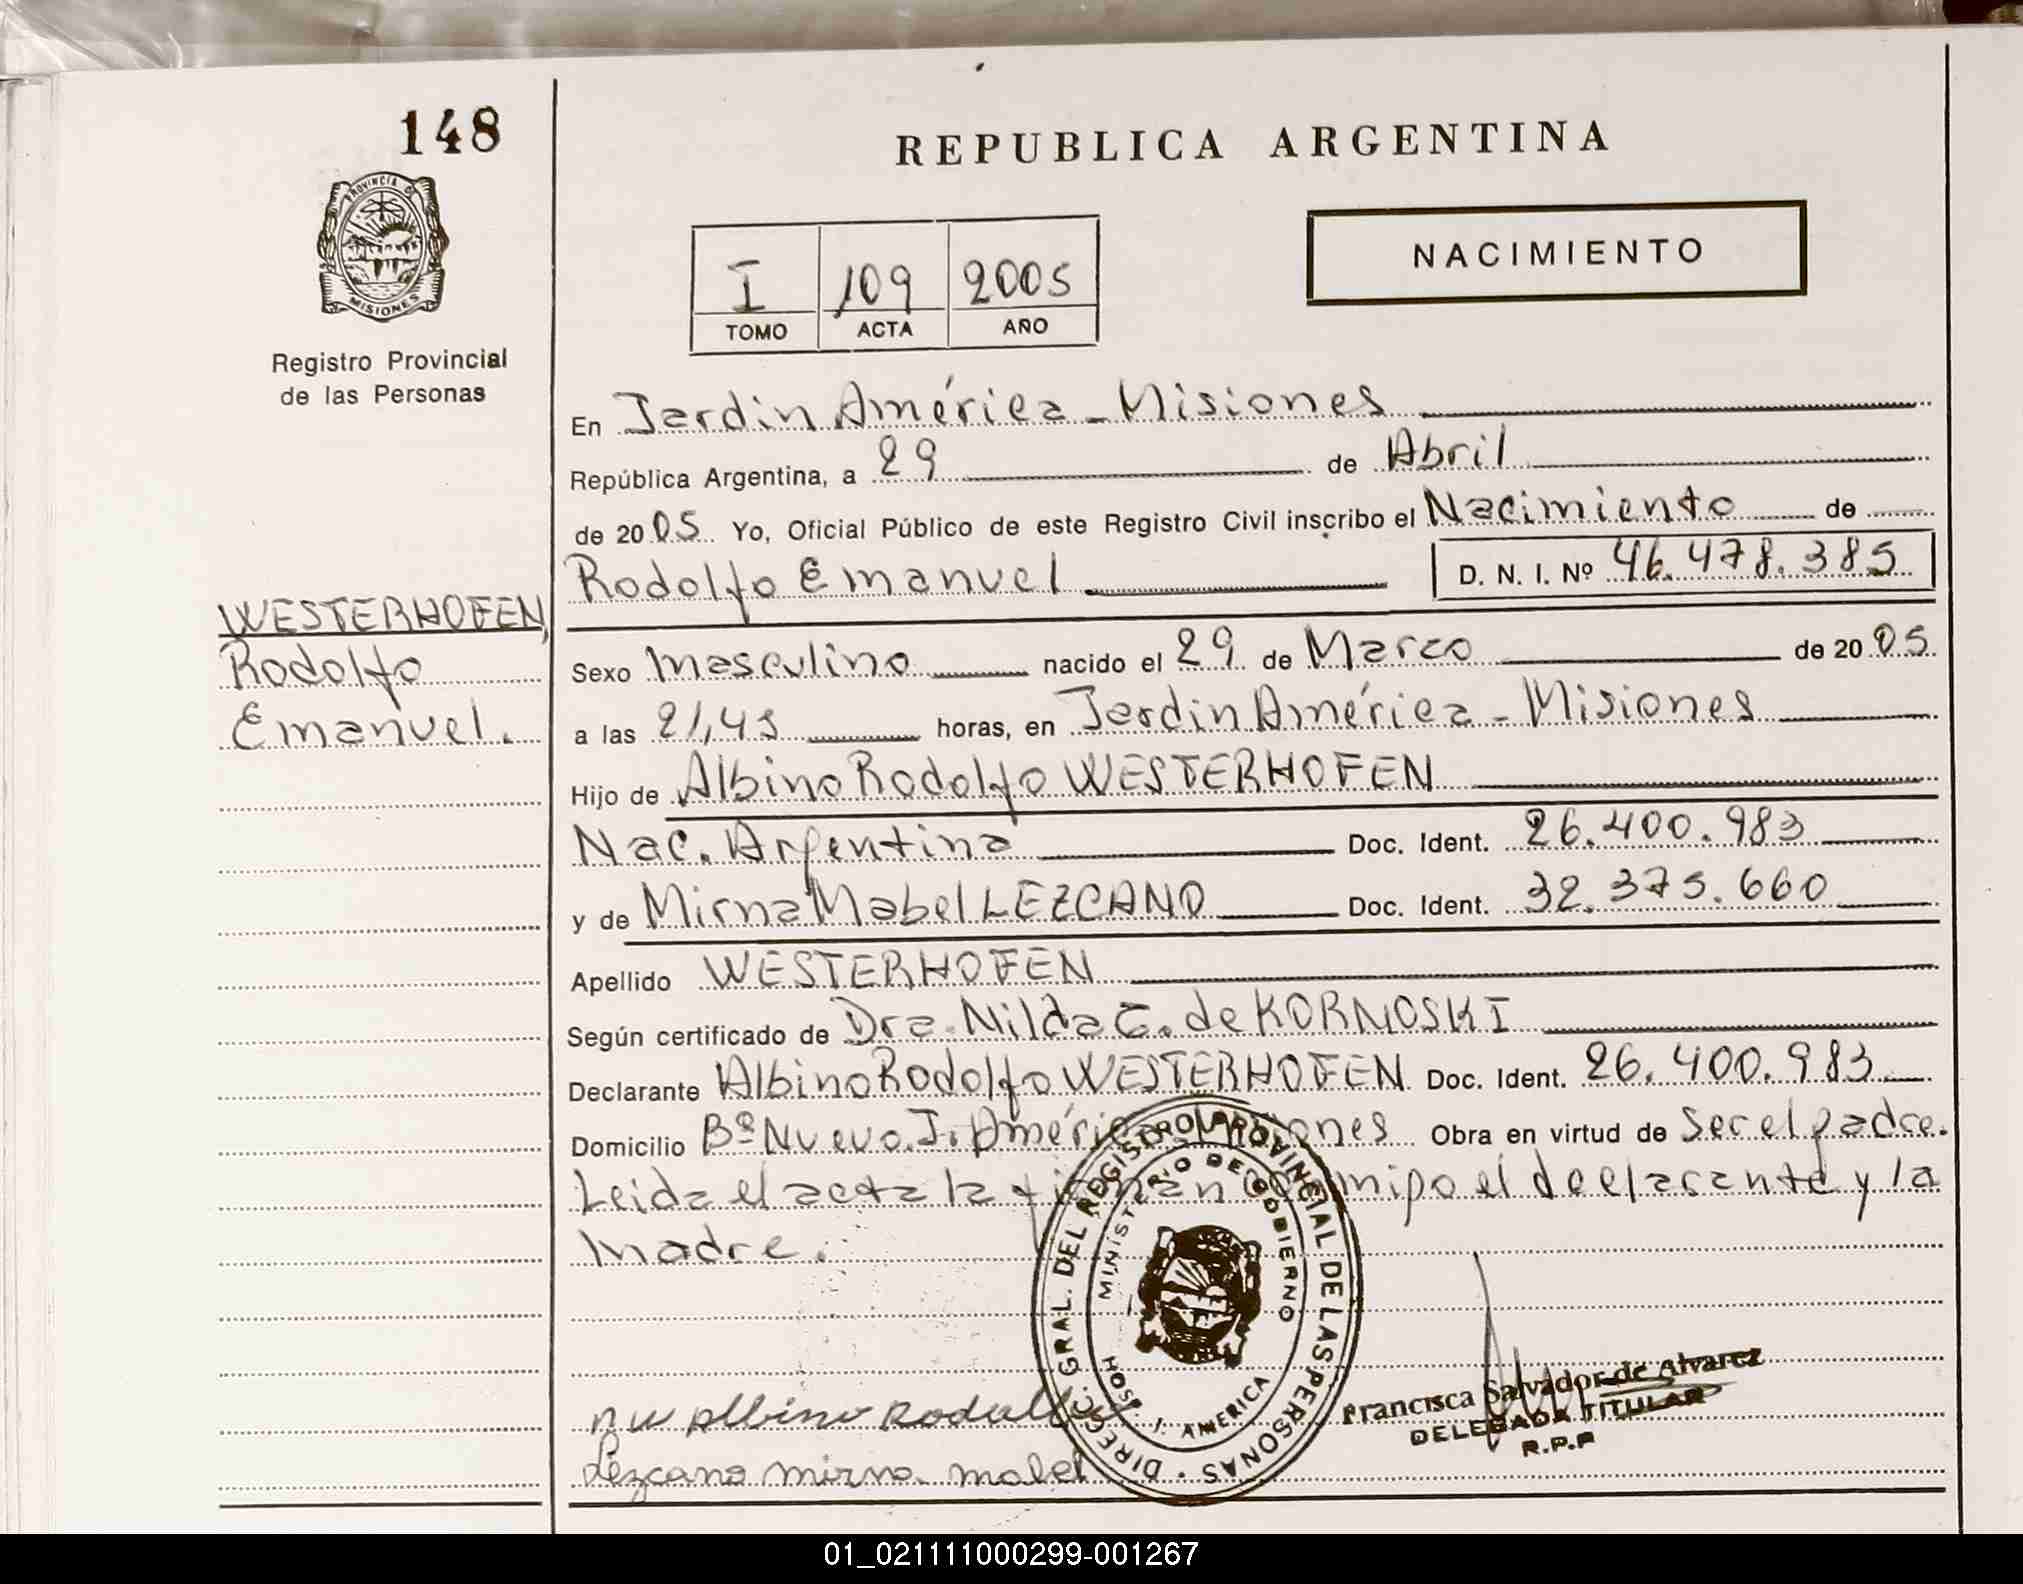 148
REPUBLICA ARGENTINA
PROVINCIA D
MISIONES
Registro Provincial
de las Personas
I 109 2005
TOMO ACTA AÑO
NACIMIENTO
En Jardin América - Misiones
República Argentina, a 29 de Abril
de 2005 Yo, Oficial Público de este Registro Civil inscribo el Nacimiento de
Rodolfo Emanuel D. N. I. Nº 46.478.385
WESTERHOFEN,
Rodolfo
Emanuel.
Sexo masculino nacido el 29 de Marzo de 2005
a las 21,45 horas, en Jardin América - Misiones
Hijo de Albino Rodolfo WESTERHOFEN
Nac. Argentina Doc. Ident. 26.400.983
y de Mirna Mabel LEZCANO Doc. Ident. 32.375.660
Apellido WESTERHOFEN
Según certificado de Dra. Nilda C. de KORNOSKI
Declarante Albino Rodolfo WESTERHOFEN Doc. Ident. 26.400.983
Domicilio Bº Nuevo. J. América - Misiones Obra en virtud de ser el padre.
Leida el acta la firman conmigo el declarante y la
madre.
DIREC. GRAL. DEL REGISTRO PROVINCIAL DE LAS PERSONAS
MINISTERIO DE GOBIERNO
HOSP. J. AMERICA
Albino Rodolfo
Lezcano mirna mabel
Francisca Salvador de Alvarez
DELEGADA TITULAR
R.P.P
01_021111000299-001267